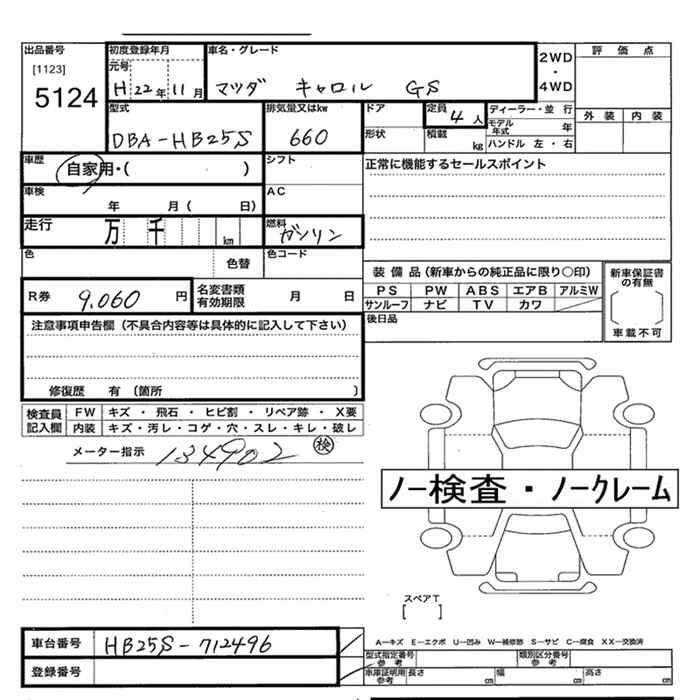 出品番号
[1123]
5124
初度登録年月
元号
H 22年 11月
車名・グレード
マツダ キャロル GS
2WD
・
4WD
評価点
外装 内装
型式
DBA-HB25S
排気量又はkw
660
ドア
形状
定員
4人
積載
kg
ディーラー・並行
モデル年式 年
ハンドル 左・右
車歴
自家用・( )
シフト
正常に機能するセールスポイント
車検
年 月( 日)
AC
走行
万 千 km
燃料
ガソリン
色
色替
色コード
R券 9,060 円
名変書類
有効期限 月 日
装備品(新車からの純正品に限り○印)
PS PW ABS エアB アルミW
サンルーフ ナビ TV カワ
新車保証書
の有無
車載不可
後日品
注意事項申告欄(不具合内容等は具体的に記入して下さい)
修復歴 有 〔箇所 〕
検査員
記入欄
FW キズ・飛石・ヒビ割・リペア跡・X要
内装 キズ・汚レ・コゲ・穴・スレ・キレ・破レ
メーター指示 134902 検
ノー検査・ノークレーム
スペアT
[ ]
車台番号 HB25S-712496
登録番号
A―キズ E―エクボ U―凹み W―補修跡 S―サビ C―腐食 XX―交換済
型式指定番号
参考
類別区分番号
参考
車庫証明用
参考
長さ cm 幅 cm 高さ cm